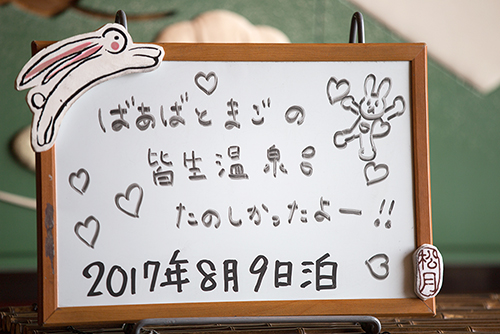 ばあばとまごの
皆生温泉♨
たのしかったよー!!
2017年8月9日泊
松月